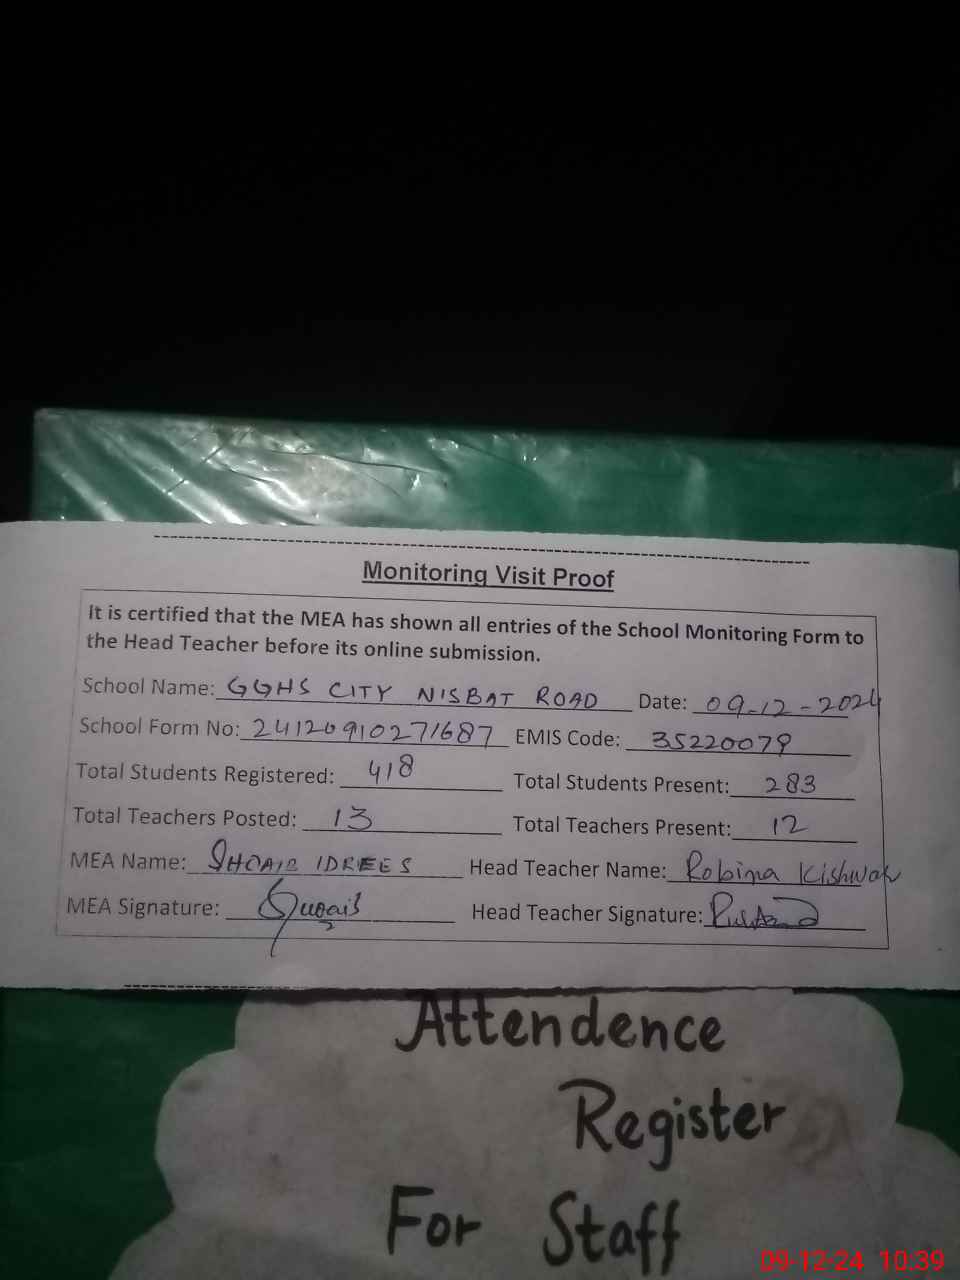 Monitoring Visit Proof
It is certified that the MEA has shown all entries of the School Monitoring Form to
the Head Teacher before its online submission.
School Name: GGHS CITY NISBAT ROAD Date: 09-12-2024
School Form No: 24120910271687 EMIS Code: 35220079
Total Students Registered: 418 Total Students Present: 283
Total Teachers Posted: 13 Total Teachers Present: 12
MEA Name: SHOAIB IDREES Head Teacher Name: Robina Kishwar
MEA Signature: Shoaib Head Teacher Signature:
Attendence
Register
For Staff
09-12-24 10:39